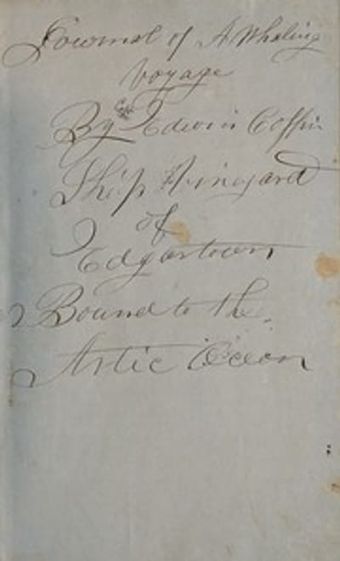 Journal of A Whaling
Voyage
By Edwin Coffin
Ship Vineyard
of
Edgartown
Bound to the
Artic Ocean